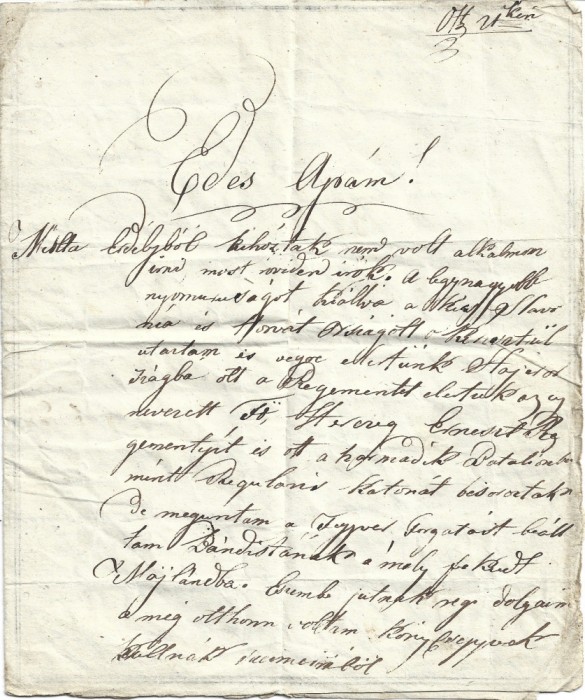 21kén
Édes Apám!
Miólta Erdélyből kihoztak nem volt alkalmom
írni most röviden irók. A legnagyobb
nyomuruságot kiálva a Slavo
nia és Horvát Országott keresztül
utaztam és végre értünk Stájeror
szágba ott a Regementet értünk az ugy
nevezett Fő Herczeg Erneszt Re
gementyit és ott a harmadik Batalion
mint Regularis Katonát bésoroztak
De meguntam a Fegyver forgatást beáll
tam Bándistának a mely feküdt
Májlandba. Eszembe jutnak régi dolgaim
a míg otthonn voltam köny cseppek
hullnak szemeimből